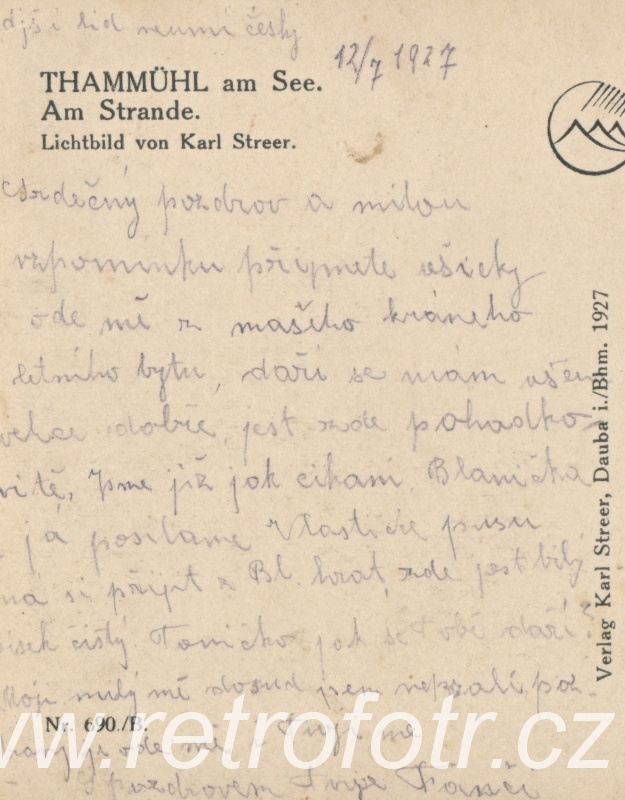 i lid neumí česky
12/7 1927
THAMMÜHL am See.
Am Strande.
Lichtbild von Karl Streer.
Srdečný pozdrav a milou
vzpomínku přijmete všicky
ode mě z našeho krásneho
letního bytu, daří se nám všem
velice dobře, jest zde pohadko-
vitě, Jsme již jak cikani. Blanička
já posílame Vlastičce pusu
si přijít z Bl. hrát, zde jest bílý
písek čistý. Toničko jak se Tobě daří?
Moji milý mě dosud jsem nepsali, poz-
ode mě i
S pozdravem Tvoje
Nr. 690./B.
Verlag Karl Streer, Dauba i./Bhm. 1927
www.retrofotr.cz